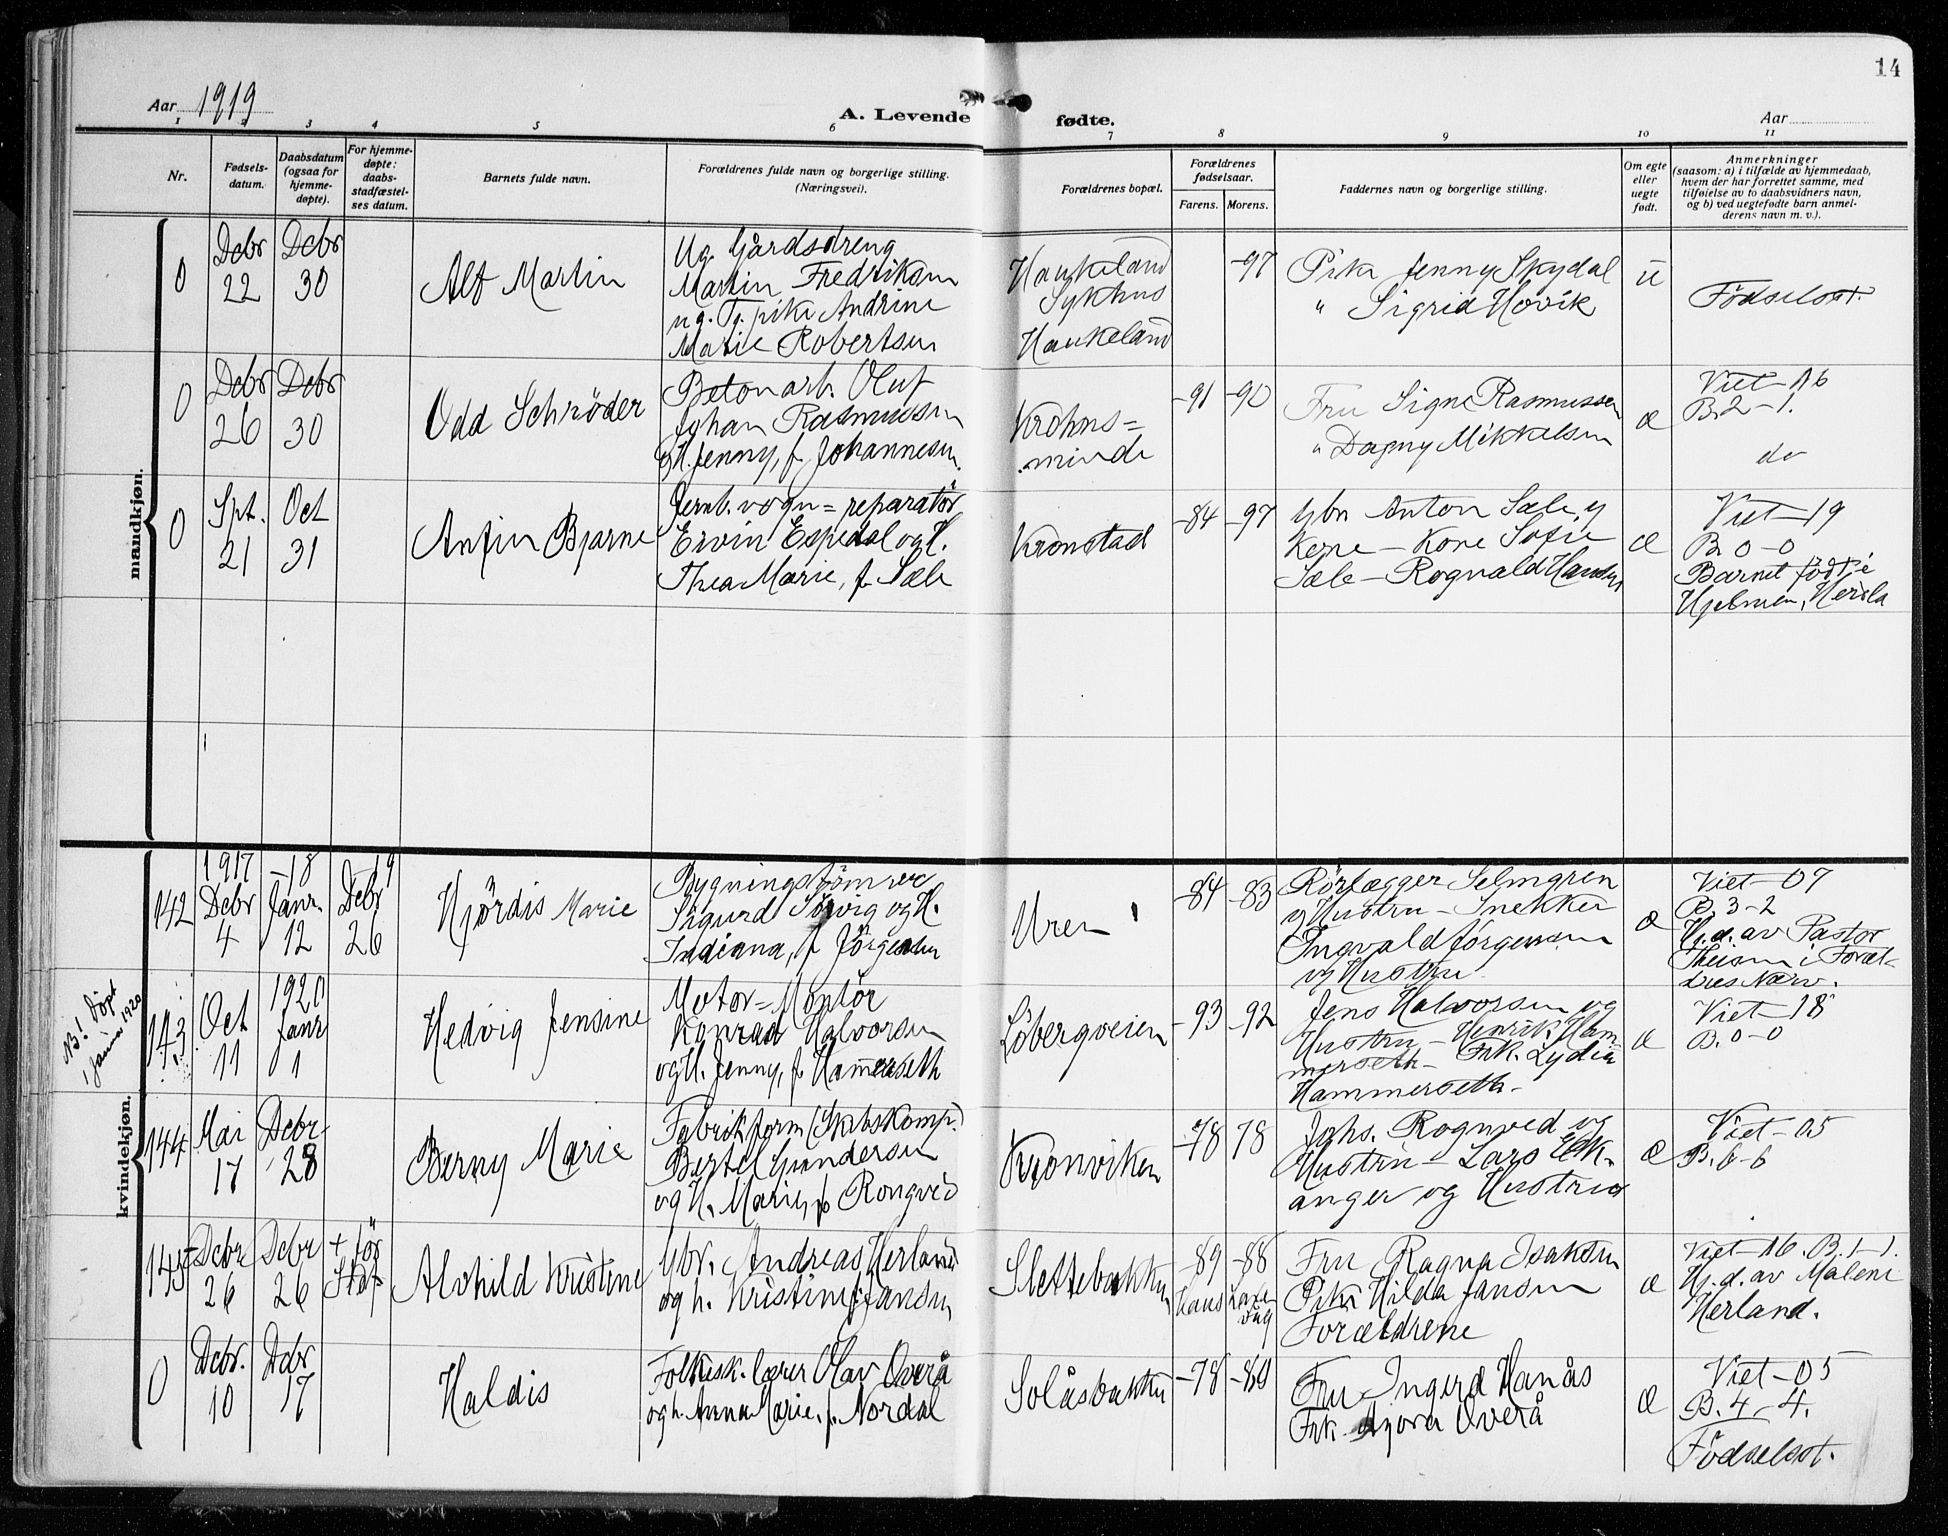 14
Aar 1919
A. Levende fødte.
Aar
1 2 3 4 5 6 7 8 9 10 11
Nr.
Fødsels-
datum.
Daabsdatum
(ogsaa for
hjemme-
døpte).
For hjemme-
døpte:
daabs-
stadfæstel-
ses datum.
Barnets fulde navn.
Forældrenes fulde navn og borgerlige stilling.
(Næringsvei).
Forældrenes bopæl.
Forældrenes
fødselsaar.
Farens. Morens.
Faddernes navn og borgerlige stilling.
Om egte
eller
uegte
født.
Anmerkninger
(saasom: a) i tilfælde av hjemmedaab,
hvem der har forrettet samme, med
tilføielse av to daabsvidners navn,
og b) ved uegtefødte barn anmel-
derens navn m. v.).
mandkjøn.
0
Debr
22
Debr
30
Alf Martin
Ug. Gårdsdreng
Martin Fredriksen
ug. Tj. pike Andrine
Marie Robertsen
Haukeland
Sykhus
Haukeland
-97
Pike Jenny Skydal
" Sigrid Hovik
u
Fødselsst.
0
Debr
26
Debr
30
Odd Schrøder
Betonarb. Oluf
Johan Rasmussen
og H. Jenny, f. Johannesen.
Krohns=
minde
-91
-90
Fru Signe Rasmussen
" Dagny Mikkelsen
æ
Viet-16
B. 2-1.
do
0
Spt.
21
Oct
31
Anfin Bjarne
Jernb. vogn=reparatør
Ervin Espedal og H.
Thea Marie, f. Sæle
Kronstad
-84
-97
Gbr Anton Sæle og
Kone - Kone Sofie
Sæle - Rognvald Hansen
æ
Viet-19
B. 0-0
Barnet født i
Hjelmen, Herdla
kvindekjøn.
142
1917
Debr
4
-18
Janr.
12
19
Debr
26
Hjørdis Marie
Bygningstømrer
Sigurd Sørvig og H.
Indiana, f. Jörgensen
Uren
-84
-83
Rørlægger Selmgren
og Hustru - Snekker
Ingvald Jörgensen
og Hustru
æ
Viet-07
B. 3-2
Hj. d. av Pastor
Theisen i Foræl-
dres Nærv.
NB! Döpt
1 Janr 1920
143
Oct
11
1920
Janr
1
Hedvig Jensine
Motor=Montör
Konrad Halvorsen
og H. Jenny, f. Hammerseth
Löbergveien
-93
-92
Jens Halvorsen og
Hustru - Henrik Ham-
merseth - Frk. Lydia
Hammerseth -
æ
Viet-18
B. 0-0
144
Mai
17
Debr
28
Berny Marie
Fabrikform (Skibskomp.)
Bertel Gundersen
og H. Marie, f. Rongved
Kronviken
-78
78
Johs. Rognved og
Hustru - Lars Eik-
anger og Hustru
æ
Viet-05
B. 6-6
145
Debr
26
Debr
26
+ för
Stdf
Alvhild Kristine
Gbr. Andreas Herland
og h. Kristine f Jansen
Slettebakken
-89
Haus
-88
Laxe-
våg
Fru Ragna Isaksen
Pike Hilda Jansen
Forældrene
æ
Viet-16. B. 1-1.
Hj. d. av Malene
Herland.
0
Debr.
10
Debr
17
Haldis
Folkesk. lærer Olav Overå
og h. Anna Marie, f. Nordal
Solåsbakken
-78
-80
Fru Ingerd Hanås
Frk. Gyora Overå
æ
Viet-05
B. 4-4.
Födselsst.